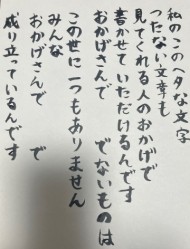 私のこのヘタな文字
つたない文章も
見てくれる人のおかげで
書かせていただけるんです
おかげさんで でないものは
この世に一つもありません
みんな
おかげさんで で
成り立っているんです